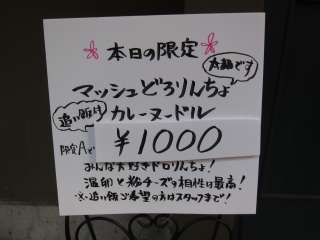 本日の限定
太麺です
マッシュどろりんちょ
追い飯付
カレーヌードル
¥1000
限定A
みんな大好きドロりんちょ!
温卵と粉チーズの相性は最高!
※追い飯ご希望の方はスタッフまで!